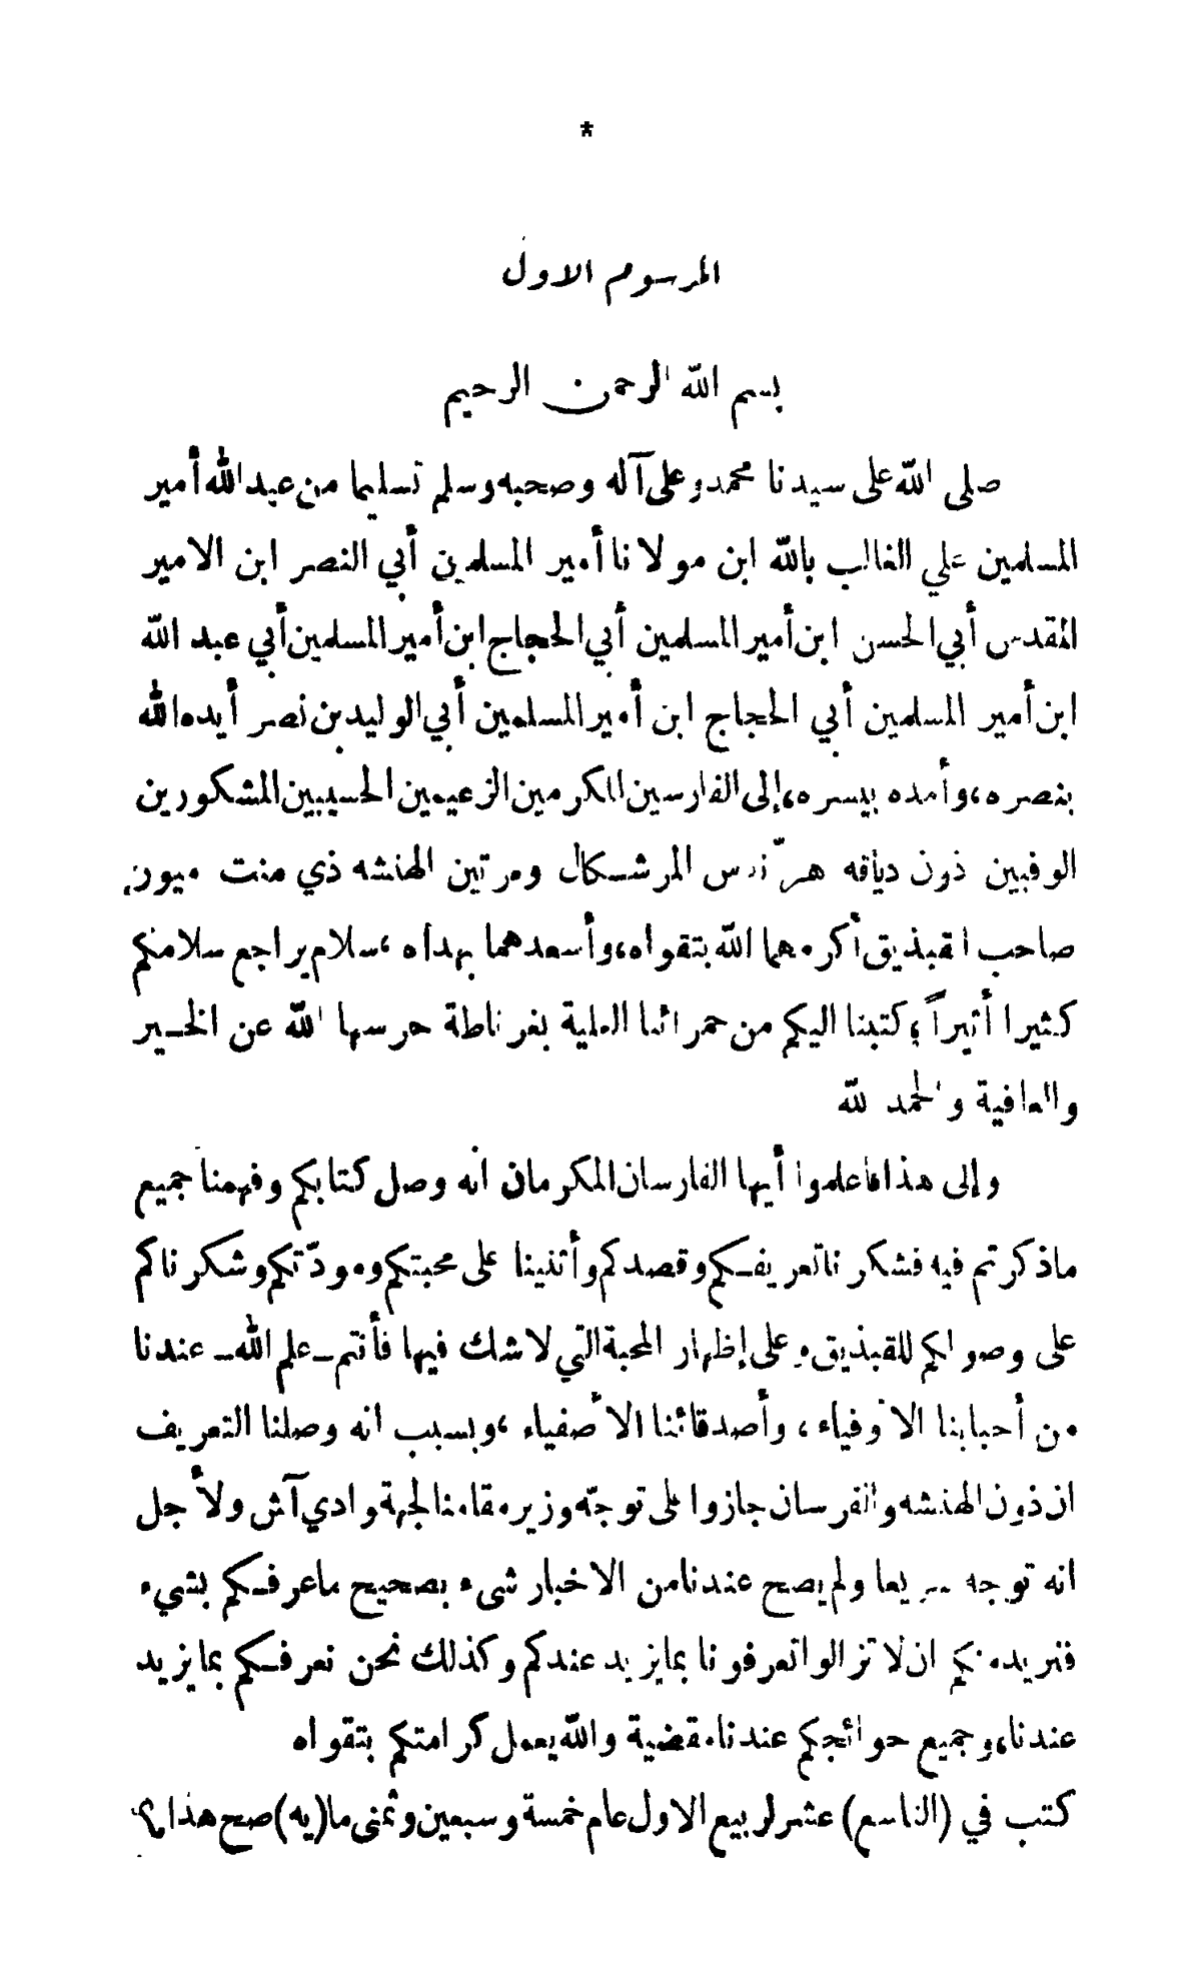 *
المرسوم الاول
بسم الله الرحمن الرحيم
صلى الله على سيدنا محمد وعلى آله وصحبه وسلم تسليما من عبد الله أمير
المسلمين علي الغالب بالله ابن مولانا أمير المسلمين أبي النصر ابن الامير
المقدس أبي الحسن ابن أمير المسلمين أبي الحجاج ابن أمير المسلمين أبي عبد الله
ابن أمير المسلمين أبي الحجاج ابن أمير المسلمين أبي الوليد بن نصر أيده الله
بنصره، وأمده بيسره، إلى الفارسين المكرمين الزعيمين الحسيبين المشكورين
الوفيين ذون دياقه هرّنذس المرشكال ومرتين الهنشه ذي منت ميور،
صاحب القبذيق أكرمهما الله بتقواه، وأسعدهما بهداه، سلام يراجع سلامكم
كثيرا أثيراً؛ كتبنا اليكم من حمرائنا العلية بغرناطة حرسها الله عن الخير
والعافية والحمد لله
وإلى هذا فاعلموا أيها الفارسان المكرمان انه وصل كتابكم وفهمنا جميع
ماذكرتم فيه فشكرنا تعريفكم وقصدكم وأثنينا على محبتكم ومودّتكم وشكرناكم
على وصولكم للقبذيق وعلى إظهار المحبة التي لاشك فيها فأنتم ـ علم الله ـ عندنا
من أحبابنا الأوفياء، وأصدقائنا الأصفياء، وبسبب انه وصلنا التعريف
ان ذون الهنشه والفرسان جازوا على توجّه وزير مقامنا لجهة وادي آش ولأجل
انه توجه سريعا ولم يصح عندنا من الاخبار شىء بصحيح ماعرفكم بشيء
فنريد منكم ان لا تزالوا تعرفونا بمايزيد عندكم وكذلك نحن نعرفكم بمايزيد
عندنا، وجميع حوائجكم عندنا مقضية والله يعمل كرامتكم بتقواه
كتب في (التاسع) عشر لربيع الاول عام خمسة وسبعين وثمنى ما(يه) صح هذا؟